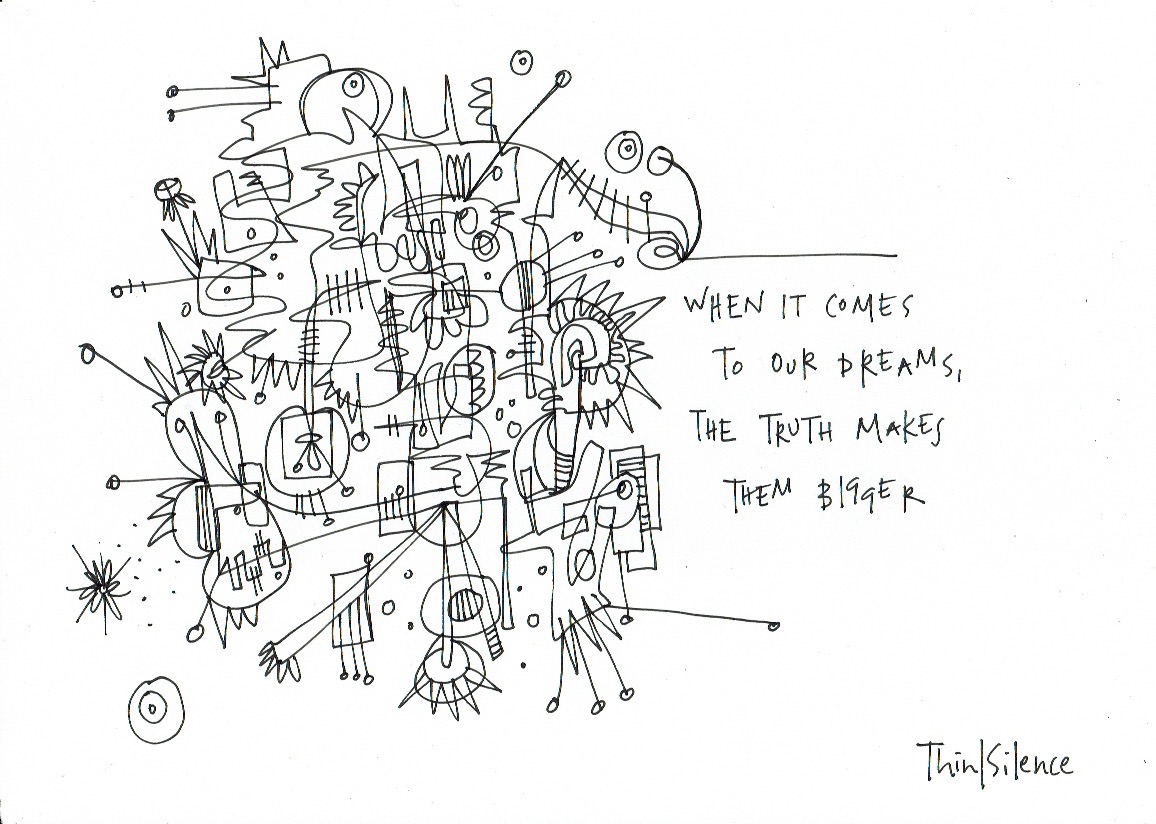 WHEN IT COMES
TO OUR DREAMS,
THE TRUTH MAKES
THEM BIGGER
Thin|Silence